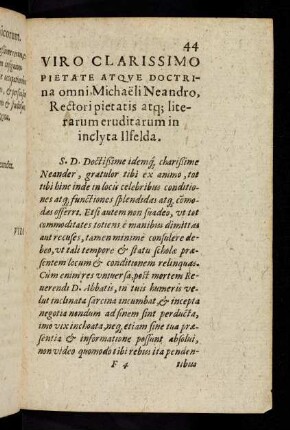 44
VIRO CLARISSIMO
PIETATE ATQVE DOCTRI-
na omni, Michaëli Neandro,
Rectori pietatis atq; lite-
rarum eruditarum in
inclyta Ilfelda.
S. D. Doctißime idemq; charißime
Neander, gratulor tibi ex animo, tot
tibi hinc inde in locis celebribus conditio-
nes atq; functiones splendidas atq; cōmo-
das offerri. Etsi autem non suadeo, vt tot
commoditates toties è manibus dimittas
aut recuses, tamen minimè consulere de-
beo, vt tali tempore & statu scholæ præ-
sentem locum & conditionem relinquas.
Cùm enim res vniuersa, post mortem Re-
uerendi D. Abbatis, in tuis humeris ve-
lut inclinata sarcina incumbat, & incepta
negotia nondum ad finem sint perducta,
imo vix inchoata, neq; etiam sine tua præ-
sentia & informatione possunt absolui,
non video quomodo tibi rebus ita penden-
F 4 tibus